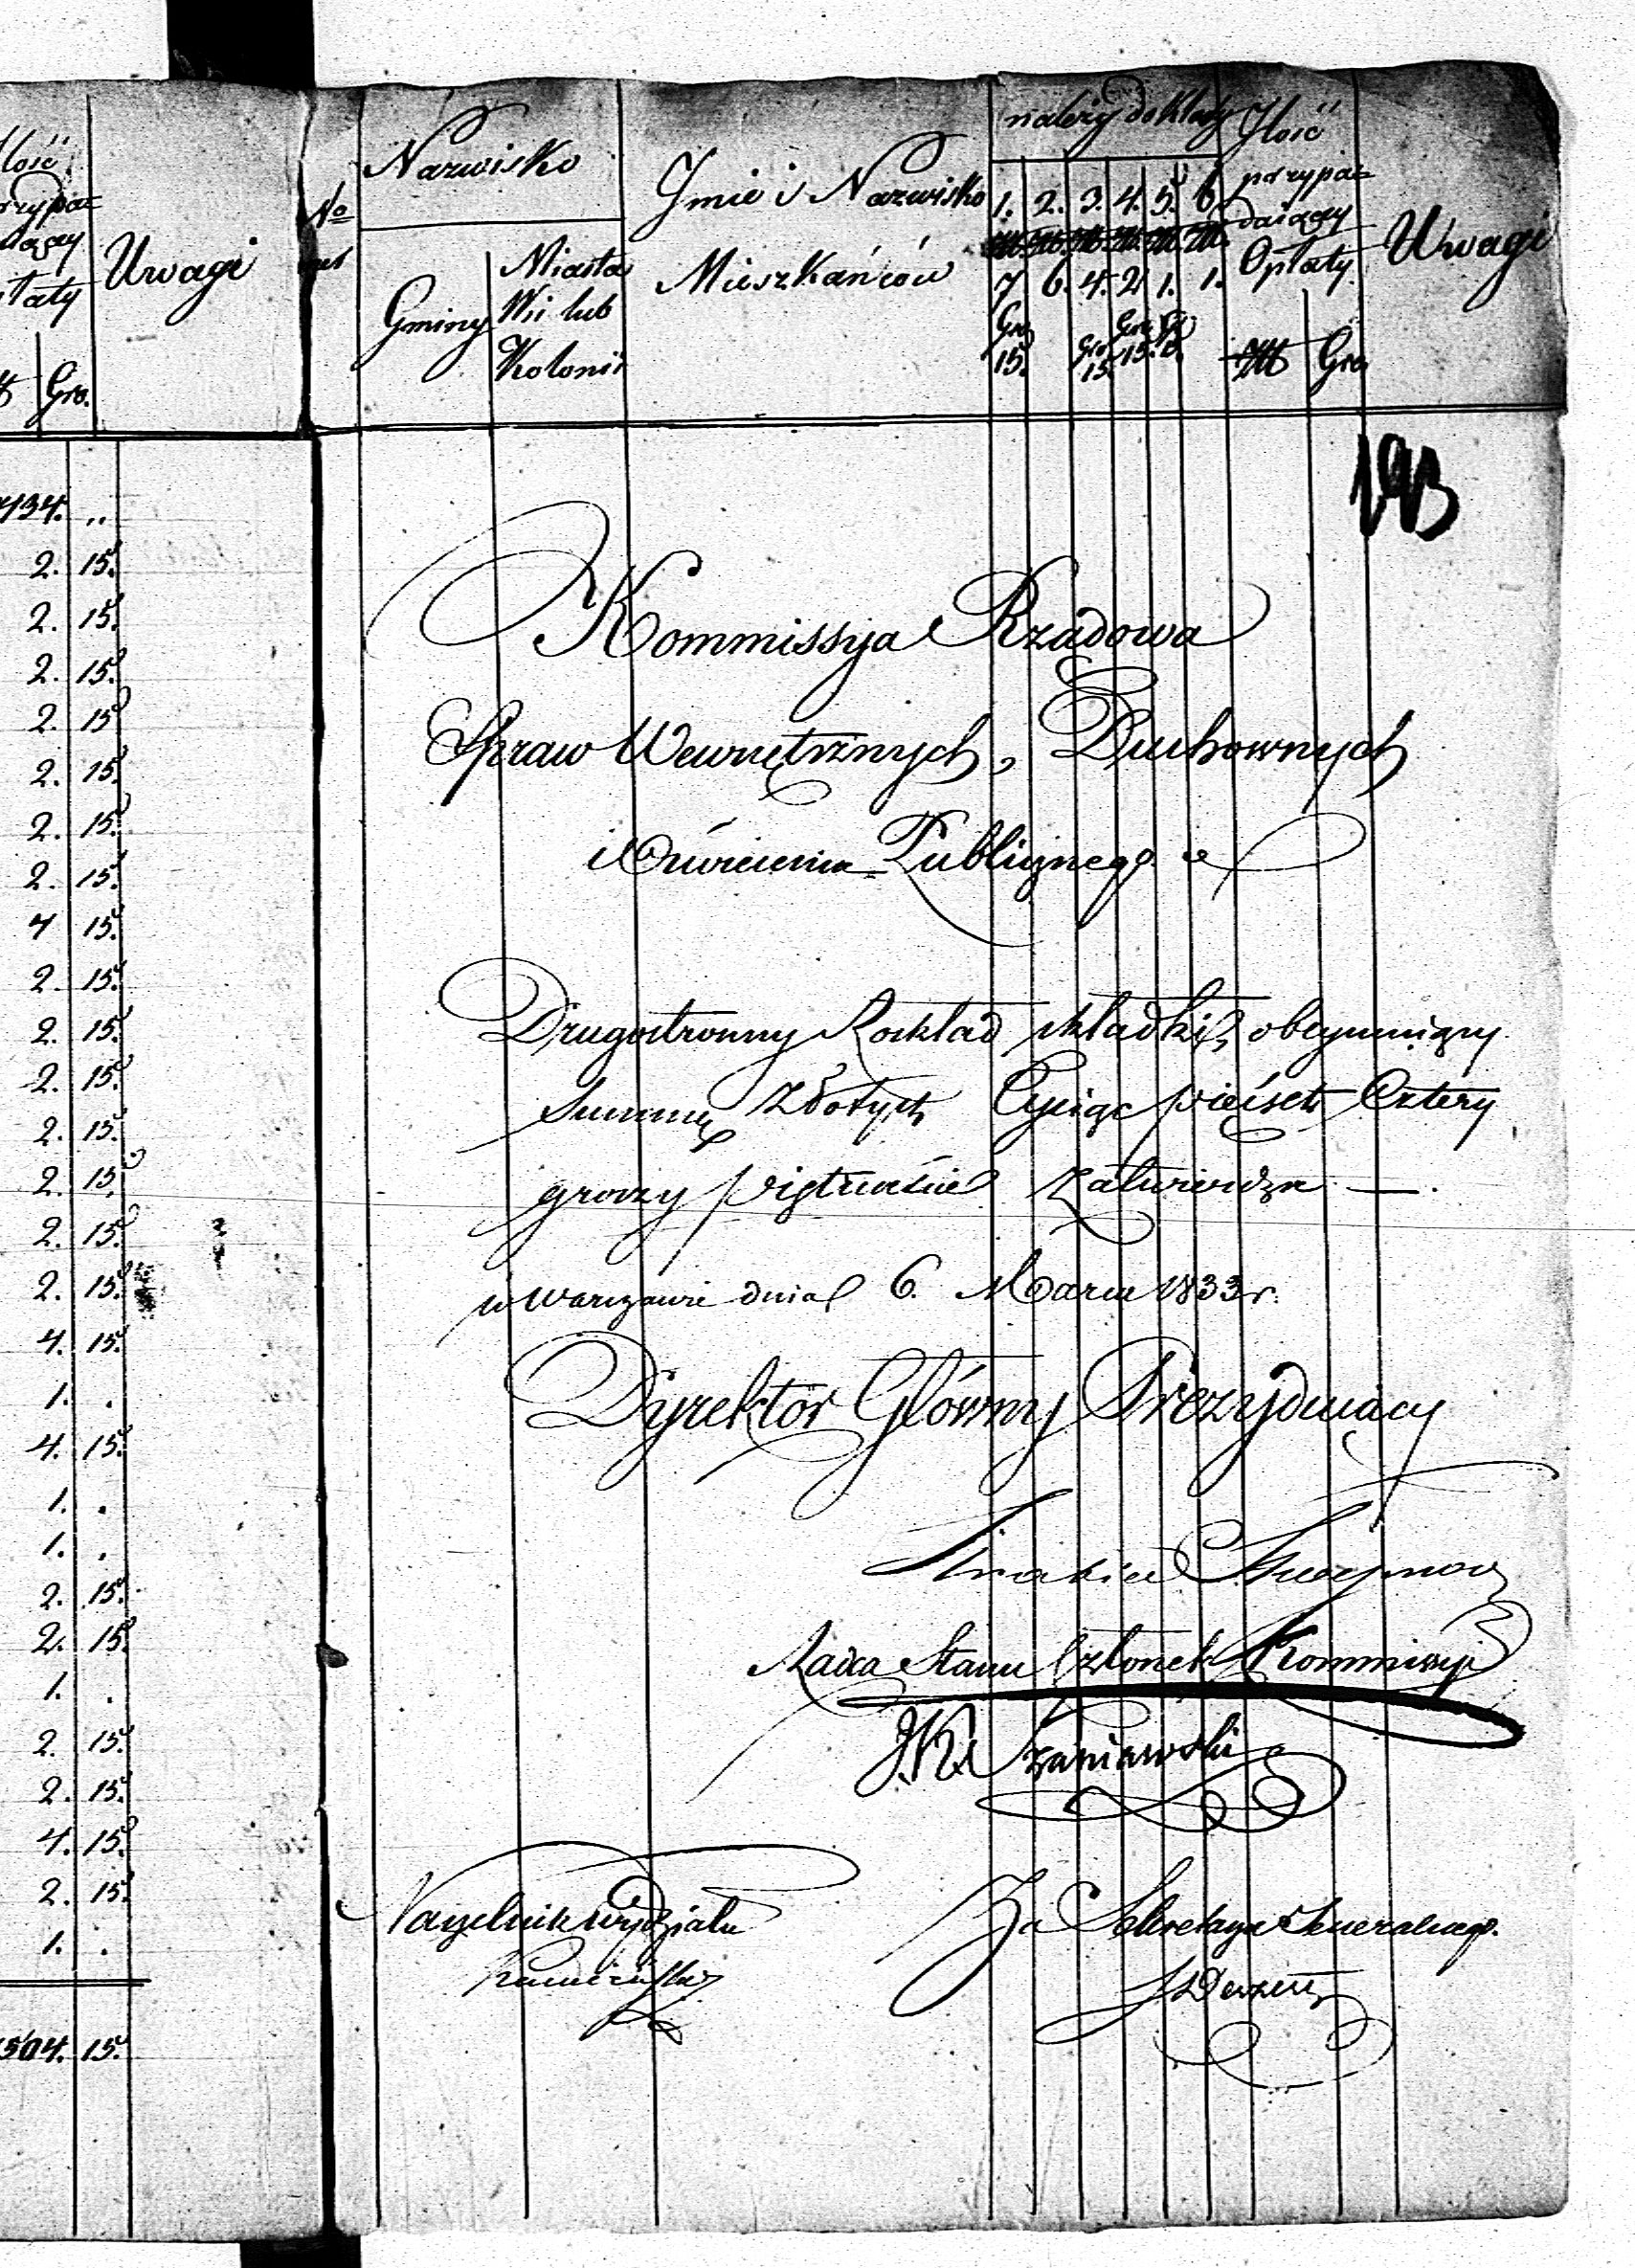 Ilość
przypa=
daiący
Opłaty
Uwagi
Gro.
434. ..
2. 15.
2. 15.
2. 15.
2. 15
2. 15.
2. 15.
2. 15.
4 15.
2. 15.
2. 15.
2. 15.
2. 15.
2. 15.
2. 15.
2. 15.
4. 15.
1. .
4. 15.
1. .
1. .
2. 15.
2. 15.
1. .
2. 15.
2. 15.
4. 15.
2. 15.
1. .
504. 15.
No
Nazwisko
Gminy
Miasta
Wsi lub
Kolonii
Jmie i Nazwisko
Mieszkańców
należy do klassy
1. 2. 3. 4. 5. 6.
7 6. 4. 2 1. 1.
Gro 15.
Gro 15.
Gro 15.
Ilość
przypa=
daiący
Opłaty
Gro
Uwagi
193
Kommissya Rządowa
Spraw Wewnętrznych, Duchownych
i Oświecenia Publicznego.
Drugostronny Rozkład składki, obeymuiący
Summę Złotych Tysiąc pięćset Cztery
groszy piętnaście Zatwierdza —.
w Warszawie dnia 6. Marca 1833 r.
Dyrektor Główny Prezyduiący
Radca Stanu Członek Kommissyi
J.K. Szaniawski
Naczelnik Wydziału
Za Sekretarza Generalnego.